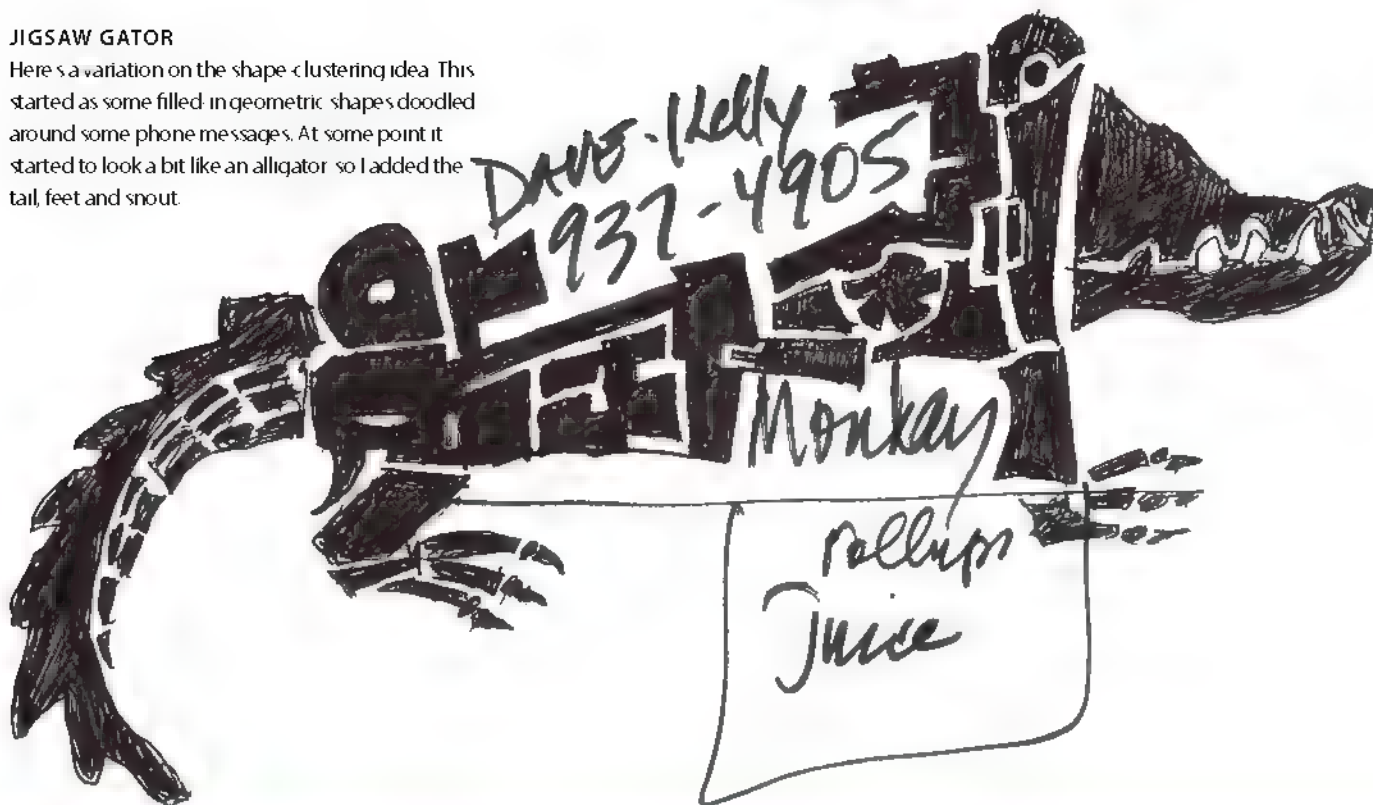 JIGSAW GATOR
Here's a variation on the shape-clustering idea. This
started as some filled-in geometric shapes doodled
around some phone messages. At some point it
started to look a bit like an alligator so I added the
tail, feet and snout.
DAVE-Kelly
937-4905
Monkey
rollups
Juice